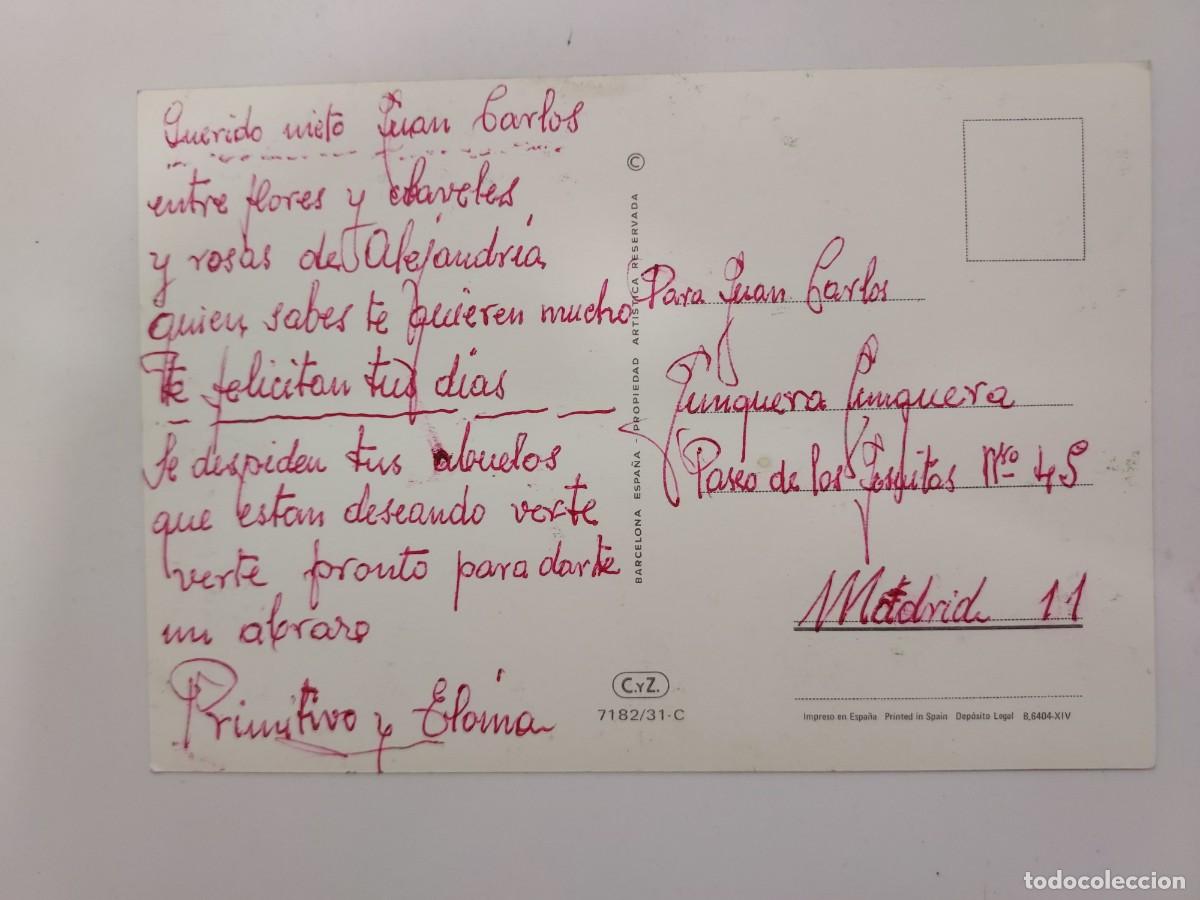 Querido nieto Juan Carlos
entre flores y claveles
y rosas de Alejandría
quien sabes te quieren mucho
Te felicitan tus días
Se despiden tus abuelos
que estan deseando verte
verte pronto para darte
un abrazo
Primitivo y Eloina
©
BARCELONA ESPAÑA - PROPIEDAD ARTISTICA RESERVADA
C.YZ.
7182/31-C
Para Juan Carlos
Junquera Junquera
Paseo de los Jesuitas Nro 45
Madrid 11
Impreso en España Printed in Spain Depósito Legal B,6404-XIV
todocoleccion